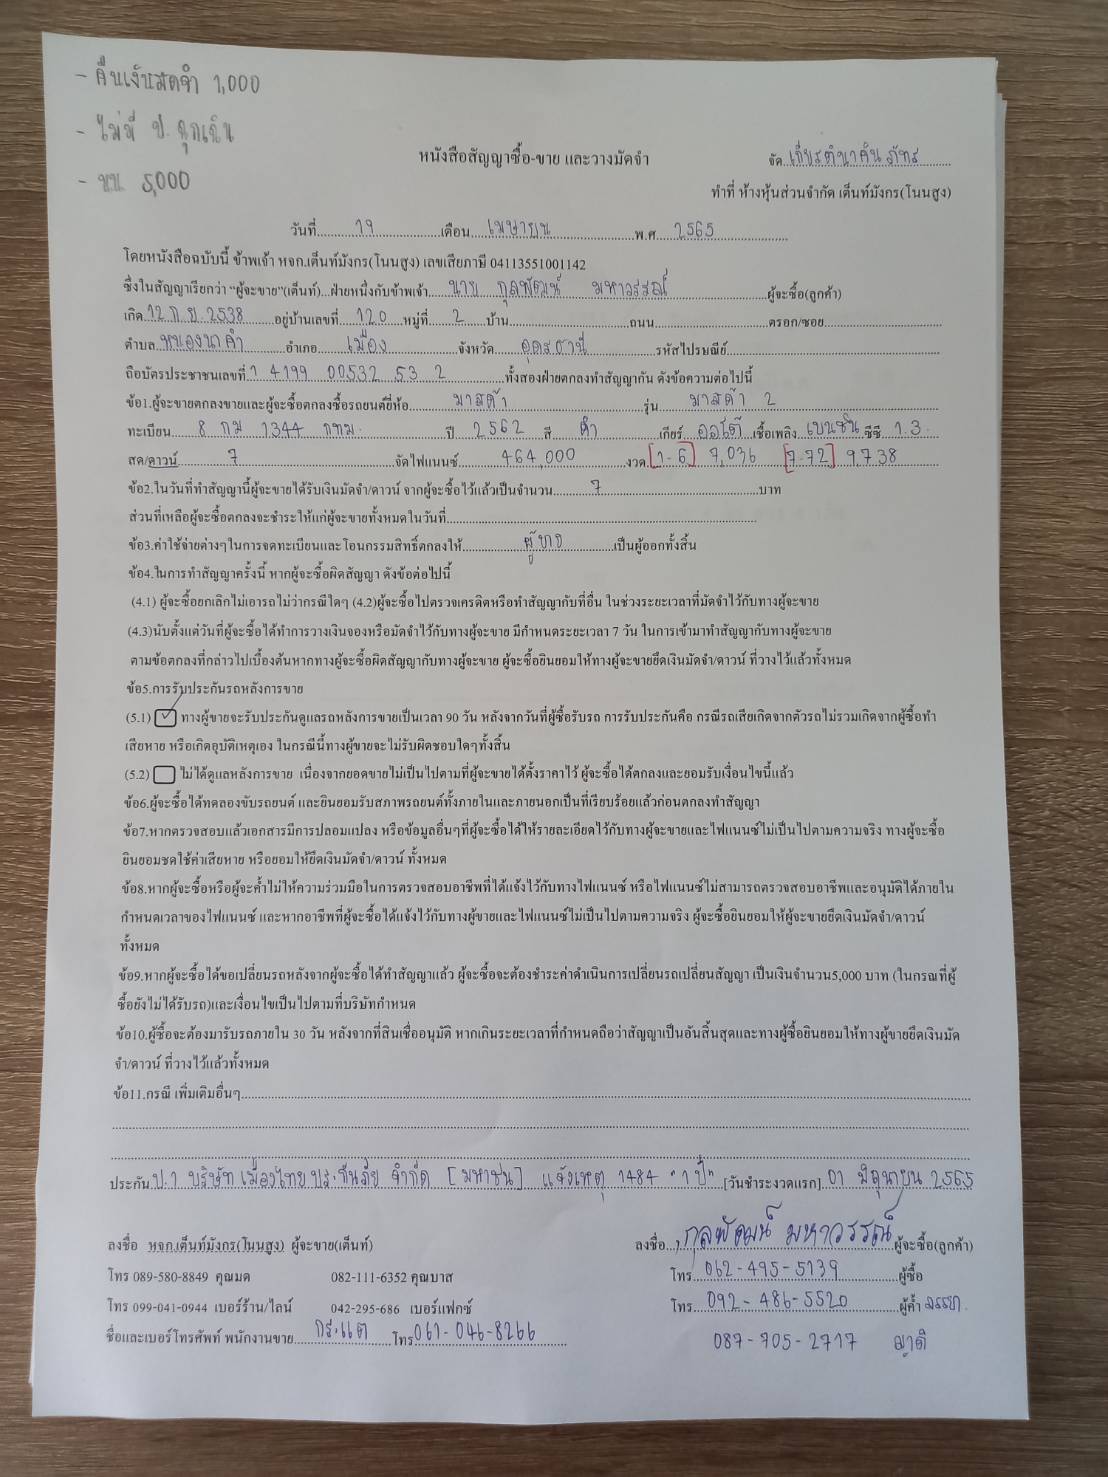 - คืนเงินมัดจำ 1,000
- ไม่มี ป. ฉุกเฉิน
- 5,000
หนังสือสัญญาซื้อ-ขาย และวางมัดจำ
จัด เกียรตินาคินภัทร
ทำที่ ห้างหุ้นส่วนจำกัด เต็นท์มังกร(โนนสูง)
วันที่ 19 เดือน เมษายน พ.ศ 2565
โดยหนังสือฉบับนี้ ข้าพเจ้า หจก.เต็นท์มังกร(โนนสูง) เลขเสียภาษี 04113551001142
ซึ่งในสัญญาเรียกว่า "ผู้จะขาย"(เต็นท์)...ฝ่ายหนึ่งกับข้าพเจ้า นาย กุลพัฒน์ มหาวรรณ์ ผู้จะซื้อ(ลูกค้า)
เกิด 12 ก.ย. 2538 อยู่บ้านเลขที่ 120 หมู่ที่ 2 บ้าน ถนน ตรอก/ซอย
ตำบล หนองนาคำ อำเภอ เมือง จังหวัด อุดรธานี รหัสไปรษณีย์
ถือบัตรประชาชนเลขที่ 1 4199 00532 53 2 ทั้งสองฝ่ายตกลงทำสัญญากัน ดังข้อความต่อไปนี้
ข้อ1.ผู้จะขายตกลงขายและผู้จะซื้อตกลงซื้อรถยนต์ยี่ห้อ มาสด้า รุ่น มาสด้า 2
ทะเบียน 8 กม 1344 กทม. ปี 2562 สี ดำ เกียร์ ออโต้ เชื้อเพลิง เบนซิน ซีซี 1.3
สด/ดาวน์ 7 จัดไฟแนนซ์ 464,000 งวด [1-6] 7,036 [7-72] 9,738
ข้อ2.ในวันที่ทำสัญญานี้ผู้จะขายได้รับเงินมัดจำ/ดาวน์ จากผู้จะซื้อไว้แล้วเป็นจำนวน 7 บาท
ส่วนที่เหลือผู้จะซื้อตกลงจะชำระให้แก่ผู้จะขายทั้งหมดในวันที่
ข้อ3.ค่าใช้จ่ายต่างๆในการจดทะเบียนและโอนกรรมสิทธิ์ตกลงให้ ผู้ขาย เป็นผู้ออกทั้งสิ้น
ข้อ4.ในการทำสัญญาครั้งนี้ หากผู้จะซื้อผิดสัญญา ดังข้อต่อไปนี้
(4.1) ผู้จะซื้อยกเลิกไม่เอารถไม่ว่ากรณีใดๆ (4.2)ผู้จะซื้อไปตรวจเครดิตหรือทำสัญญากับที่อื่น ในช่วงระยะเวลาที่มัดจำไว้กับทางผู้จะขาย
(4.3)นับตั้งแต่วันที่ผู้จะซื้อได้ทำการวางเงินจองหรือมัดจำไว้กับทางผู้จะขาย มีกำหนดระยะเวลา 7 วัน ในการเข้ามาทำสัญญากับทางผู้จะขาย
ตามข้อตกลงที่กล่าวไปเบื้องต้นหากทางผู้จะซื้อผิดสัญญากับทางผู้จะขาย ผู้จะซื้อยินยอมให้ทางผู้จะขายยึดเงินมัดจำ/ดาวน์ ที่วางไว้แล้วทั้งหมด
ข้อ5.การรับประกันรถหลังการขาย
(5.1) ✓ ทางผู้ขายจะรับประกันดูแลรถหลังการขายเป็นเวลา 90 วัน หลังจากวันที่ผู้ซื้อรับรถ การรับประกันคือ กรณีรถเสียเกิดจากตัวรถไม่รวมเกิดจากผู้ซื้อทำ
เสียหาย หรือเกิดอุบัติเหตุเอง ในกรณีนี้ทางผู้ขายจะไม่รับผิดชอบใดๆทั้งสิ้น
(5.2) ไม่ได้ดูแลหลังการขาย เนื่องจากยอดขายไม่เป็นไปตามที่ผู้จะขายได้ตั้งราคาไว้ ผู้จะซื้อได้ตกลงและยอมรับเงื่อนไขนี้แล้ว
ข้อ6.ผู้จะซื้อได้ทดลองขับรถยนต์ และยินยอมรับสภาพรถยนต์ทั้งภายในและภายนอกเป็นที่เรียบร้อยแล้วก่อนตกลงทำสัญญา
ข้อ7.หากตรวจสอบแล้วเอกสารมีการปลอมแปลง หรือข้อมูลอื่นๆที่ผู้จะซื้อได้ให้รายละเอียดไว้กับทางผู้จะขายและไฟแนนซ์ไม่เป็นไปตามความจริง ทางผู้จะซื้อ
ยินยอมชดใช้ค่าเสียหาย หรือยอมให้ยึดเงินมัดจำ/ดาวน์ ทั้งหมด
ข้อ8.หากผู้จะซื้อหรือผู้จะค้ำไม่ให้ความร่วมมือในการตรวจสอบอาชีพที่ได้แจ้งไว้กับทางไฟแนนซ์ หรือไฟแนนซ์ไม่สามารถตรวจสอบอาชีพและอนุมัติได้ภายใน
กำหนดเวลาของไฟแนนซ์ และหากอาชีพที่ผู้จะซื้อได้แจ้งไว้กับทางผู้ขายและไฟแนนซ์ไม่เป็นไปตามความจริง ผู้จะซื้อยินยอมให้ผู้จะขายยึดเงินมัดจำ/ดาวน์
ทั้งหมด
ข้อ9.หากผู้จะซื้อได้ขอเปลี่ยนรถหลังจากผู้จะซื้อได้ทำสัญญาแล้ว ผู้จะซื้อจะต้องชำระค่าดำเนินการเปลี่ยนรถเปลี่ยนสัญญา เป็นเงินจำนวน5,000 บาท (ในกรณที่ผู้
ซื้อยังไม่ได้รับรถ)และเงื่อนไขเป็นไปตามที่บริษัทกำหนด
ข้อ10.ผู้ซื้อจะต้องมารับรถภายใน 30 วัน หลังจากที่สินเชื่ออนุมัติ หากเกินระยะเวลาที่กำหนดถือว่าสัญญาเป็นอันสิ้นสุดและทางผู้ซื้อยินยอมให้ทางผู้ขายยึดเงินมัด
จำ/ดาวน์ ที่วางไว้แล้วทั้งหมด
ข้อ11.กรณี เพิ่มเติมอื่นๆ
ประกัน ป.1 บริษัท เมืองไทยประกันภัย จำกัด [มหาชน] แจ้งเหตุ 1484 "1 ปี" [วันชำระงวดแรก] 01 มิถุนายน 2565
ลงชื่อ หจก.เต็นท์มังกร(โนนสูง) ผู้จะขาย(เต็นท์) ลงชื่อ กุลพัฒน์ มหาวรรณ์ ผู้จะซื้อ(ลูกค้า)
โทร 089-580-8849 คุณมด 082-111-6352 คุณบาส โทร 062-495-5139 ผู้ซื้อ
โทร 099-041-0944 เบอร์ร้าน/ไลน์ 042-295-686 เบอร์แฟกซ์ โทร 092-486-5520 ผู้ค้ำ ภรรยา
ชื่อและเบอร์โทรศัพท์ พนักงานขาย กระแต โทร 061-046-8266 087-705-2717 ญาติ